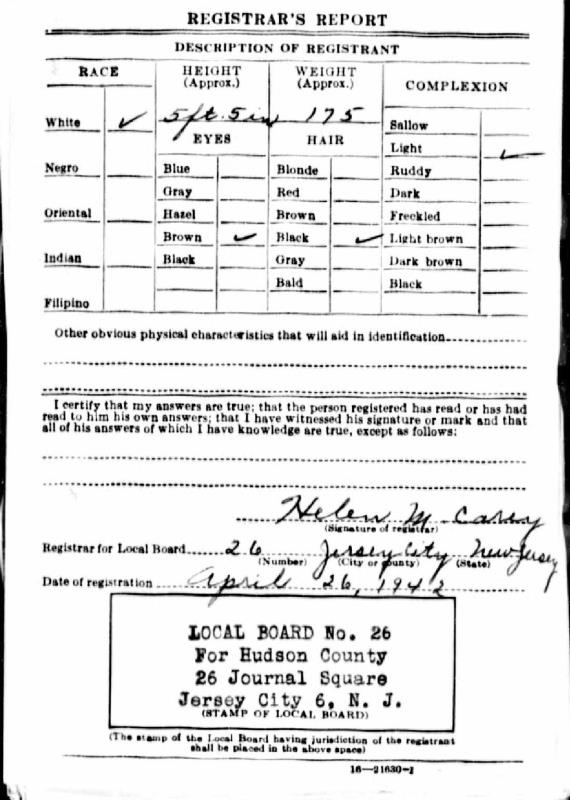 REGISTRAR'S REPORT
DESCRIPTION OF REGISTRANT
RACE
HEIGHT (Approx.)
WEIGHT (Approx.)
COMPLEXION
White ✓
5 ft. 5 in
175
Sallow
EYES
HAIR
Light ✓
Negro
Blue
Blonde
Ruddy
Gray
Red
Dark
Oriental
Hazel
Brown
Freckled
Brown ✓
Black ✓
Light brown
Indian
Black
Gray
Dark brown
Bald
Black
Filipino
Other obvious physical characteristics that will aid in identification
I certify that my answers are true; that the person registered has read or has had
read to him his own answers; that I have witnessed his signature or mark and that
all of his answers of which I have knowledge are true, except as follows:
Helen M. Carey
(Signature of registrar)
Registrar for Local Board 26 Jersey City New Jersey
(Number) (City or county) (State)
Date of registration April 26, 1942
LOCAL BOARD No. 26
For Hudson County
26 Journal Square
Jersey City 6, N. J.
(STAMP OF LOCAL BOARD)
(The stamp of the Local Board having jurisdiction of the registrant
shall be placed in the above space)
16—21630-1